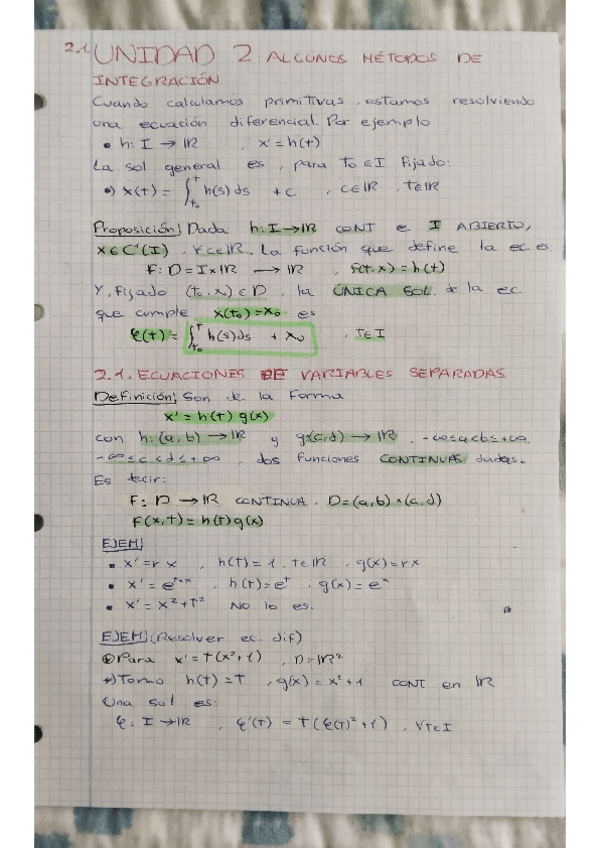 2.1 UNIDAD 2 ALGUNOS MÉTODOS DE
INTEGRACIÓN.
Cuando calculamos primitivas, estamos resolviendo
una ecuación diferencial. Por ejemplo
• h: I → IR , x' = h(t)
La sol general es, para t₀ ∈ I fijado:
•) x(t) = ∫_{t₀}^{t} h(s) ds + c , c ∈ IR , t ∈ IR
Proposición| Dada h: I → IR CONT e I ABIERTO,
x ∈ C¹(I), ∀c ∈ IR. La función que define la ec es
F: D = I x IR → IR , f(t,x) = h(t)
Y, fijado (t₀, x₀) ∈ D, la ÚNICA SOL de la ec
que cumple x(t₀) = x₀ es
φ(t) = ∫_{t₀}^{t} h(s) ds + x₀ , t ∈ I
2.1. ECUACIONES DE VARIABLES SEPARADAS
Definición| Son de la forma
x' = h(t) g(x)
con h: (a,b) → IR y g: (c,d) → IR, -∞ ≤ a < b ≤ +∞,
-∞ ≤ c < d ≤ +∞, dos funciones CONTINUAS dadas.
Es decir:
F: D → IR CONTINUA. D = (a,b) x (c,d)
F(x,t) = h(t) g(x)
EJEM|
• x' = r x , h(t) = 1, t ∈ IR , g(x) = rx
• x' = e^{t+x} , h(t) = e^t , g(x) = e^x
• x' = x² + t² NO lo es.
EJEM| (Resolver ec. dif)
Para x' = t(x²+1) , D = IR²
*) Tomo h(t) = t , g(x) = x² + 1 CONT en IR
Una sol es:
φ: I → IR , φ'(t) = t(φ(t)² + 1) , ∀t ∈ I